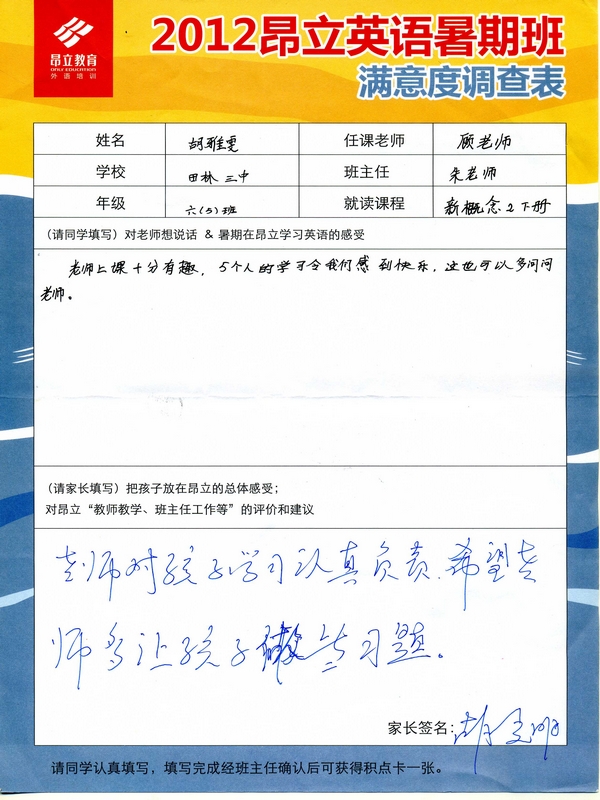 昂立教育
ONLY EDUCATION
外语培训
2012昂立英语暑期班
满意度调查表
姓名 胡雅雯 任课老师 顾老师
学校 田林三中 班主任 朱老师
年级 六(5)班 就读课程 新概念2下册
(请同学填写)对老师想说话 & 暑期在昂立学习英语的感受
老师上课十分有趣，5个人的学习令我们感到快乐，这也可以多问问
老师。
(请家长填写)把孩子放在昂立的总体感受；
对昂立“教师教学、班主任工作等”的评价和建议
老师对孩子学习认真负责.希望老
师多让孩子做些习题。
家长签名： 胡
请同学认真填写，填写完成经班主任确认后可获得积点卡一张。